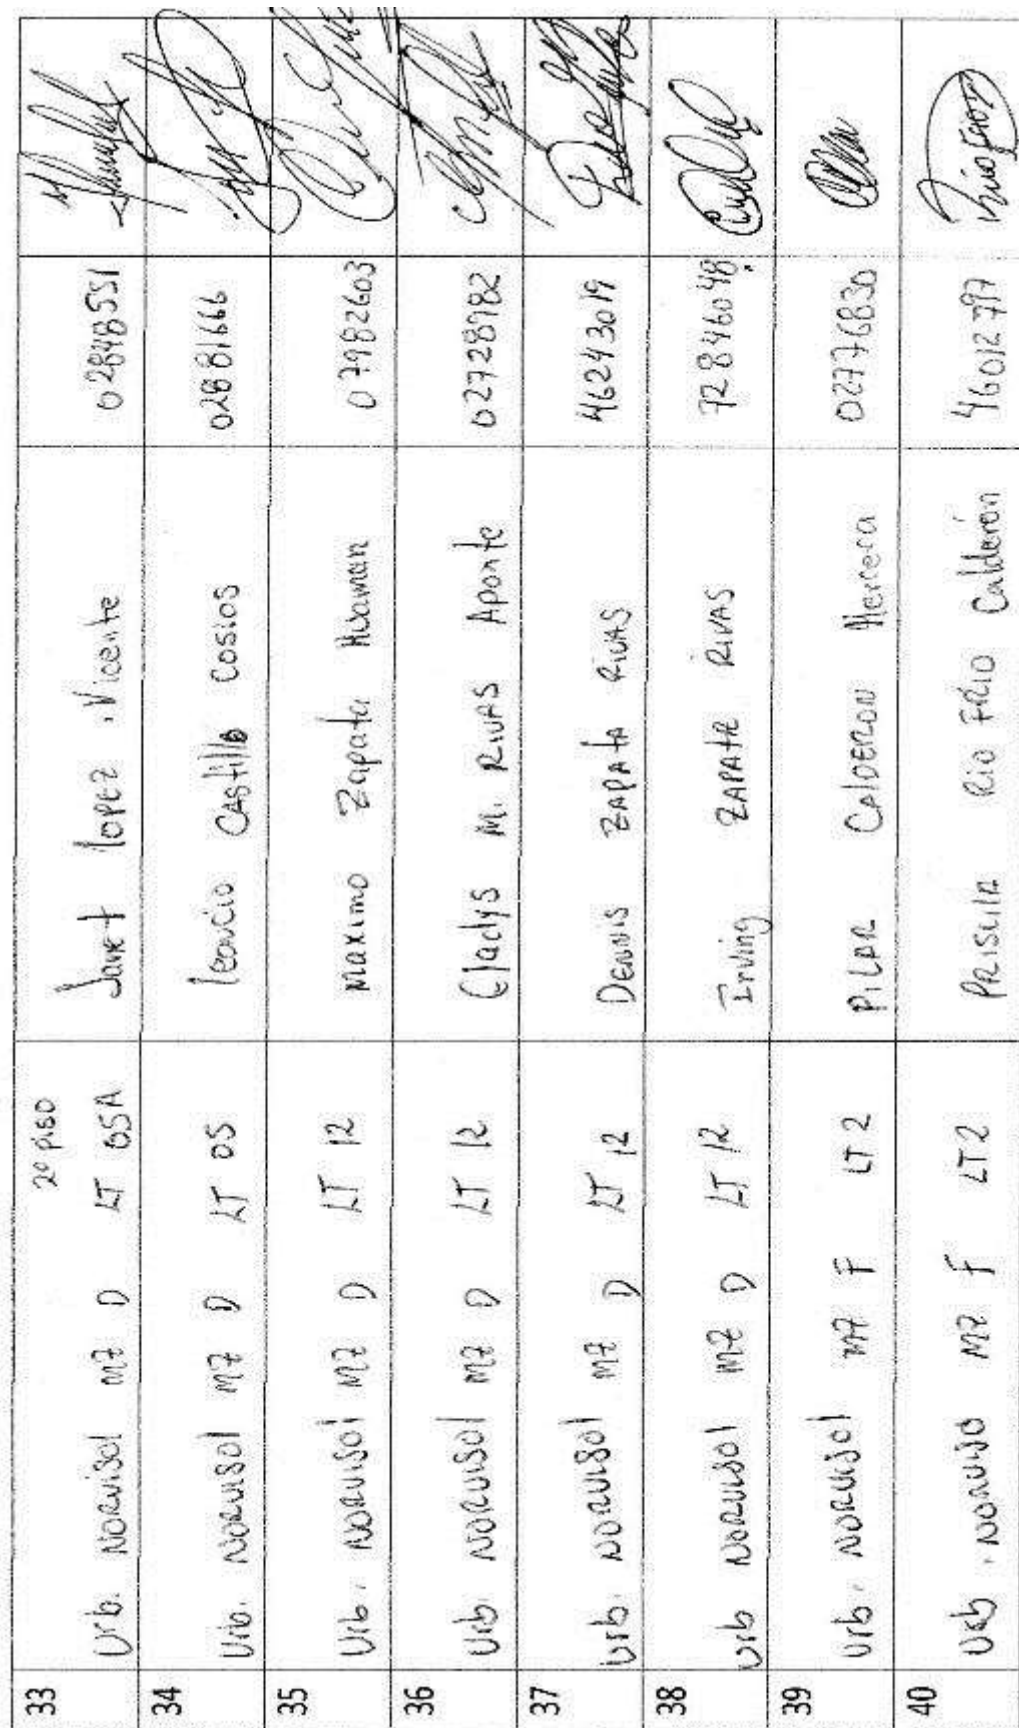 33 Urb. NORVISOl MZ D LT 05A 2º PISO Janet lopez Vicente 02848551
34 Urb. NORVISOl MZ D LT 05 leoncio CAStillo Cosios 02881666
35 Urb. NORVISOl MZ D LT 12 Maximo Zapata Huaman 07982603
36 Urb. NORVISOl MZ D LT 12 Gladys M. RIVAS Aponte 02728982
37 Urb. NORVISOl MZ D LT 12 DENNIS ZAPAtA RIVAS 46243019
38 Urb NORVISOl MZ D LT 12 Irving ZAPAtA RIVAS 72846048
39 Urb. NORVISOl MZ F LT 2 PILAR CAlDERON Herrera 02776830
40 Urb. NORVISO MZ F LT 2 PRISCILA RIO FRIO Calderón 46012797